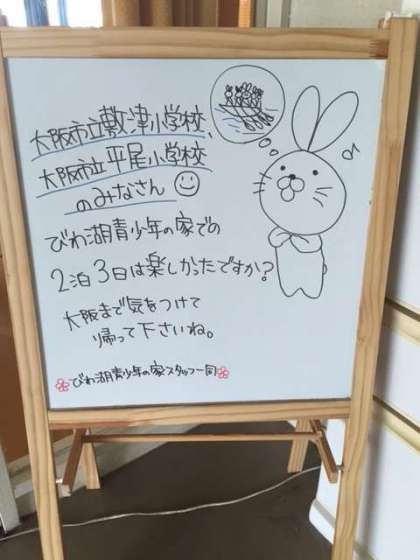 大阪市立敷津小学校、
大阪市立平尾小学校
のみなさん
びわ湖青少年の家での
2泊3日は楽しかったですか?
大阪まで気をつけて
帰って下さいね。
びわ湖青少年の家スタッフ一同